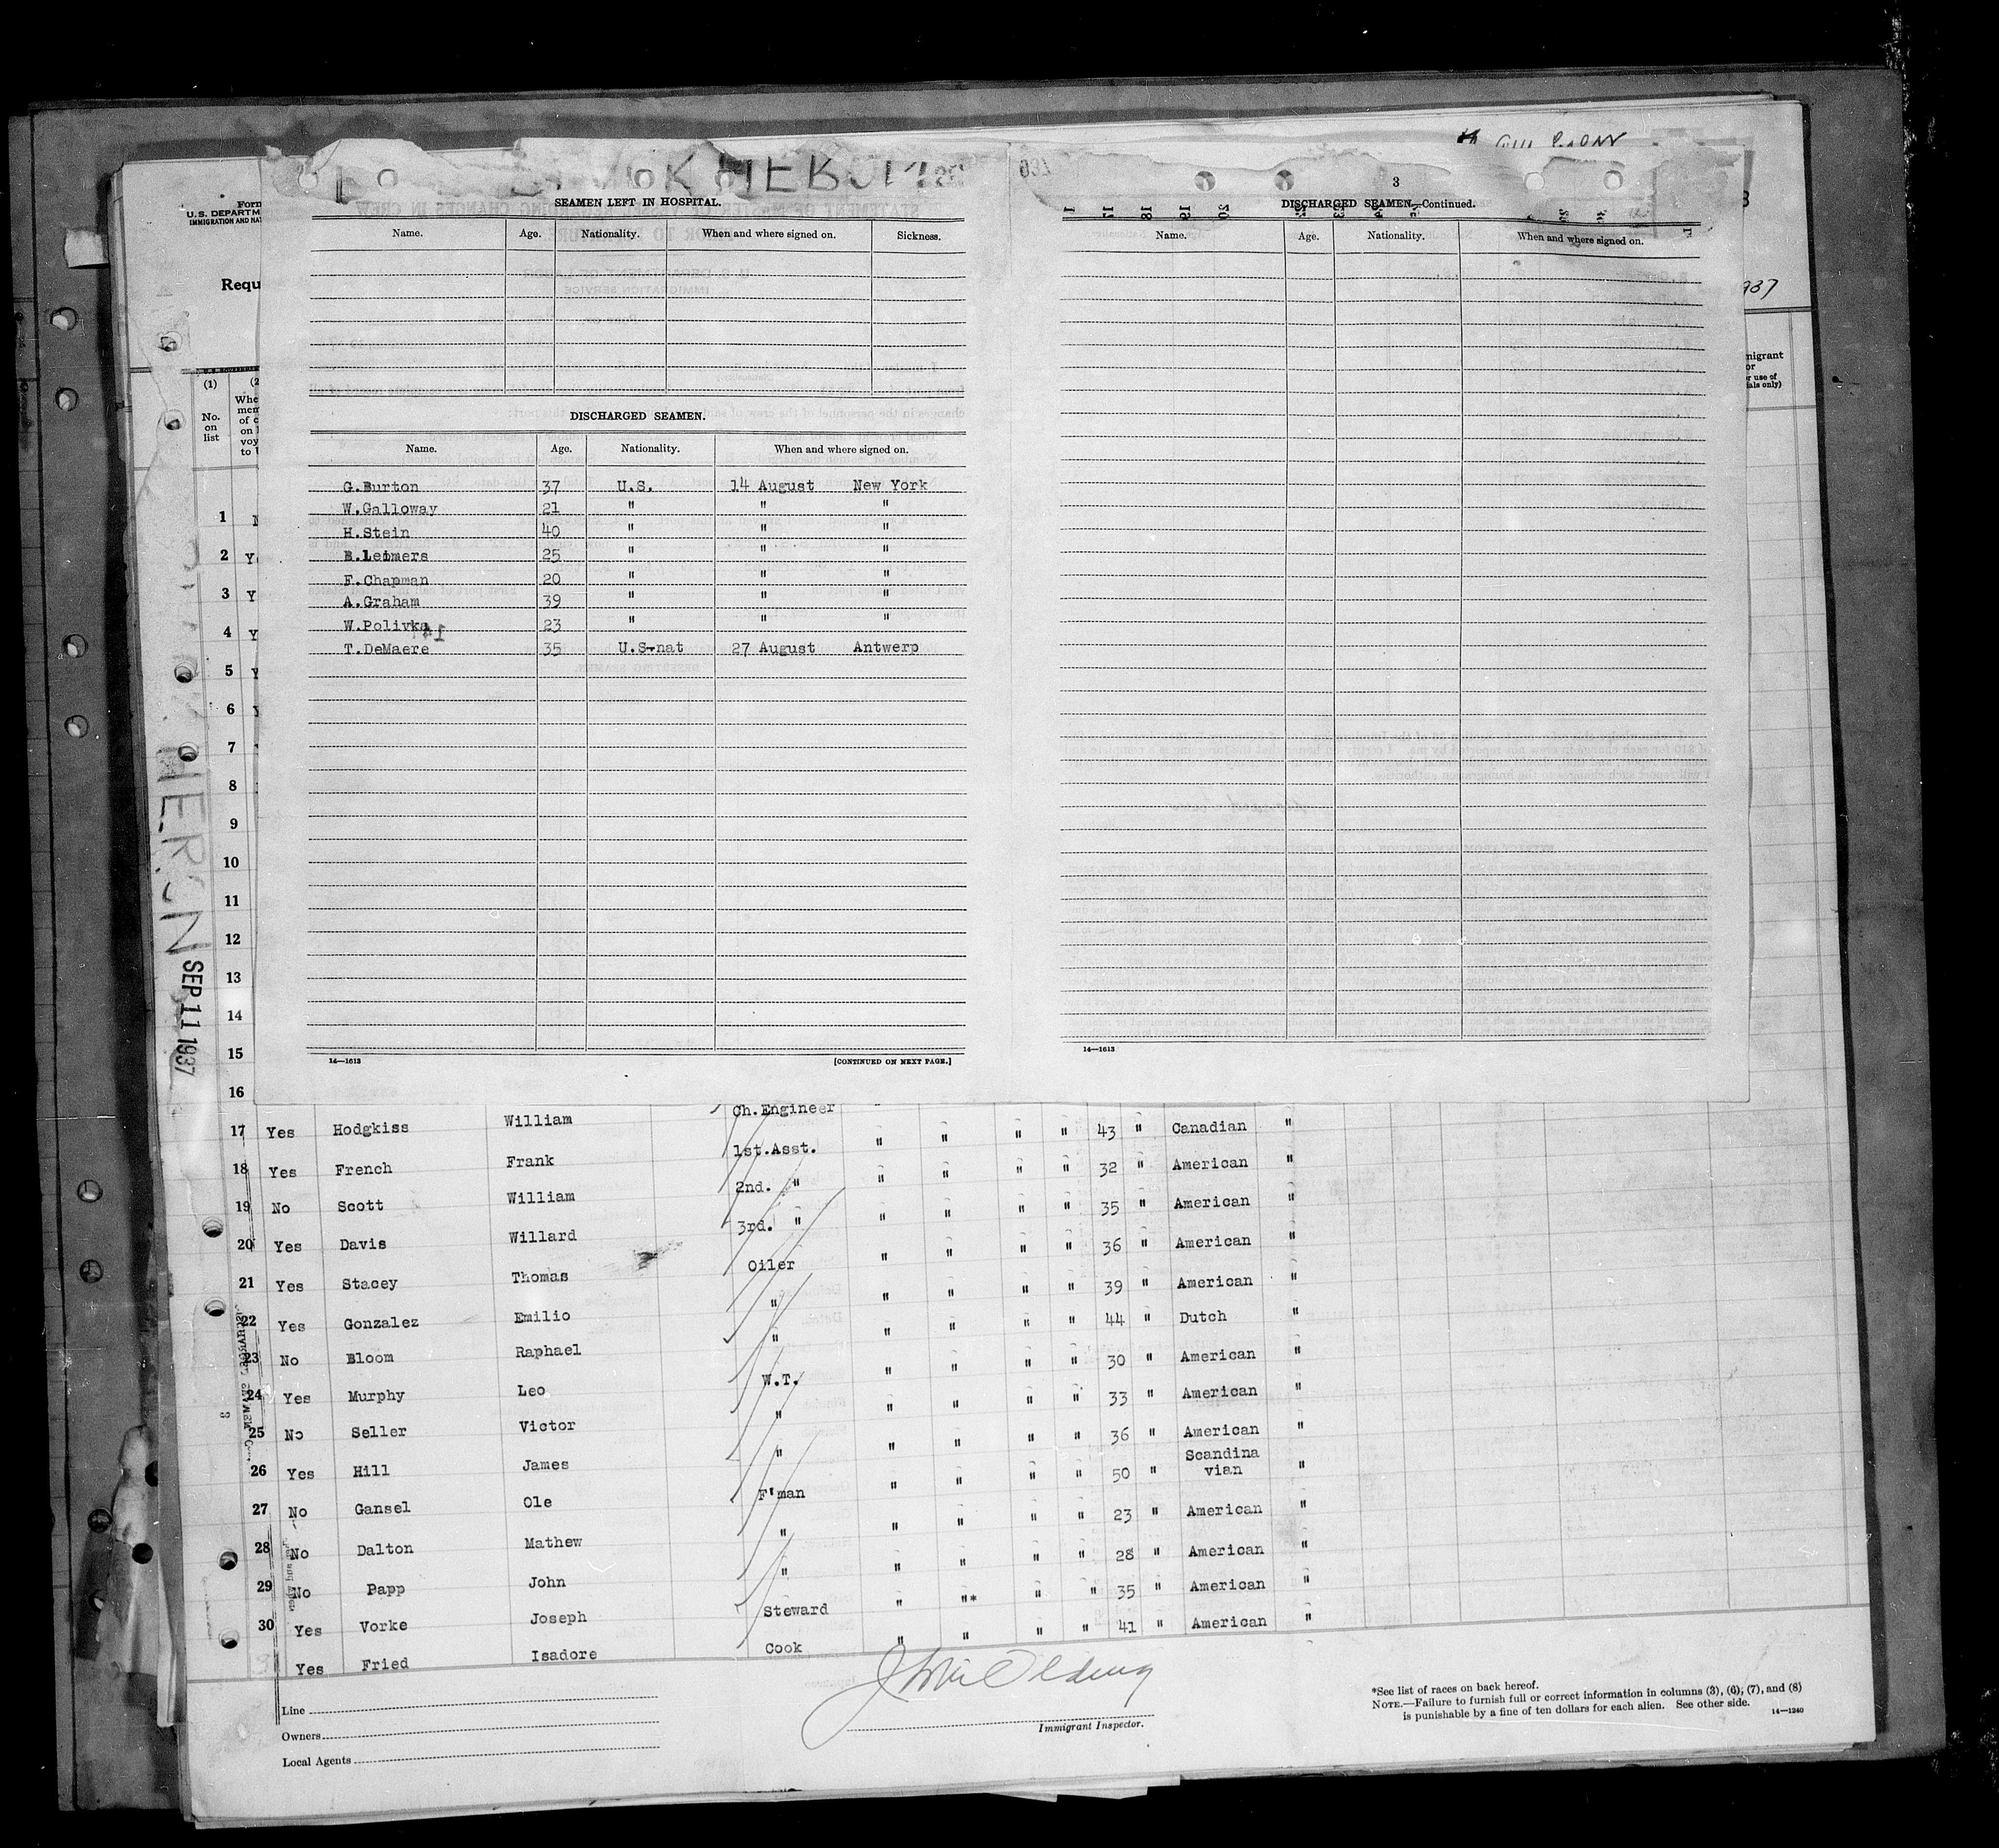 K HERON
3
SEAMEN LEFT IN HOSPITAL.
Name. Age. Nationality. When and where signed on. Sickness.
DISCHARGED SEAMEN.
Name. Age. Nationality. When and where signed on.
G.Burton 37 U.S. 14 August New York
W.Galloway 21 " " "
H.Stein 40 " " "
B.Leimers 25 " " "
F.Chapman 20 " " "
A.Graham 39 " " "
W.Polivka 23 " " "
T.DeMaere 35 U.S-nat 27 August Antwerp
14—1613 [CONTINUED ON NEXT PAGE.]
DISCHARGED SEAMEN—Continued.
Name. Age. Nationality. When and where signed on.
14—1613
Form
U.S. DEPARTM
IMMIGRATION AND NAT
Requ
937
(1)
No.
on
list
(2
Whe
mem
of c
on l
voy
to U
migrant
or
r use of
ials only)
1
2 Y
3 Y
4 Y
5 Y
6
7
8
9
10
11
12
13
14
15
16
HERON
SEP 11 1937
17 Yes Hodgkiss William Ch.Engineer " " " " 43 " Canadian "
18 Yes French Frank 1st.Asst. " " " " 32 " American "
19 No Scott William 2nd. " " " " " 35 " American "
20 Yes Davis Willard 3rd. " " " " " 36 " American "
21 Yes Stacey Thomas Oiler " " " " 39 " American "
22 Yes Gonzalez Emilio " " " " " 44 " Dutch "
23 No Bloom Raphael " " " " " 30 " American "
24 Yes Murphy Leo W.T. " " " " 33 " American "
25 No Seller Victor " " " " " 36 " American "
26 Yes Hill James " " " " " 50 " Scandina
vian "
27 No Gansel Ole F'man " " " " 23 " American "
28 No Dalton Mathew " " " " " 28 " American "
29 No Papp John " " "* " " 35 " American "
30 Yes Vorke Joseph Steward " " " " 41 " American "
Yes Fried Isadore Cook
Line
Owners
Local Agents
Immigrant Inspector.
*See list of races on back hereof.
NOTE.—Failure to furnish full or correct information in columns (3), (6), (7), and (8)
is punishable by a fine of ten dollars for each alien. See other side. 14—1240